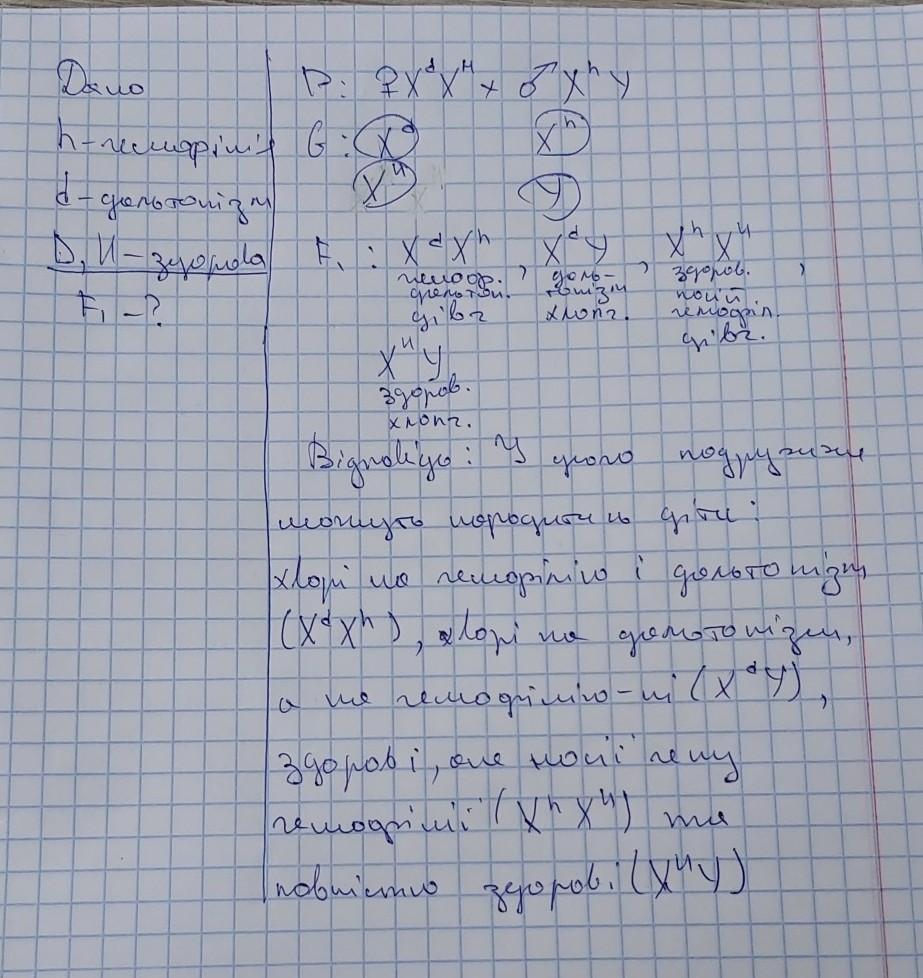 Дано
h - гемофілія
d - дальтонізм
D, H - здорова
F₁ - ?
P: ♀XᵈXᴴ × ♂XʰY
G: Xᵈ Xʰ
Xᴴ Y
F₁: XᵈXʰ, XᵈY, XʰXᴴ,
гемоф. даль- здоров.
дальтон. тонізм носій
дівч хлопч. гемофіл.
дівч.
XᴴY
здоров.
хлопч.
Відповідь: У цього подружжя
можуть народитись діти:
хворі на гемофілію і дальтонізм
(XᵈXʰ), хворі на дальтонізм,
а на гемофілію - ні (XᵈY),
здорові, але носії гену
гемофілії (XʰXᴴ) та
повністю здорові (XᴴY)